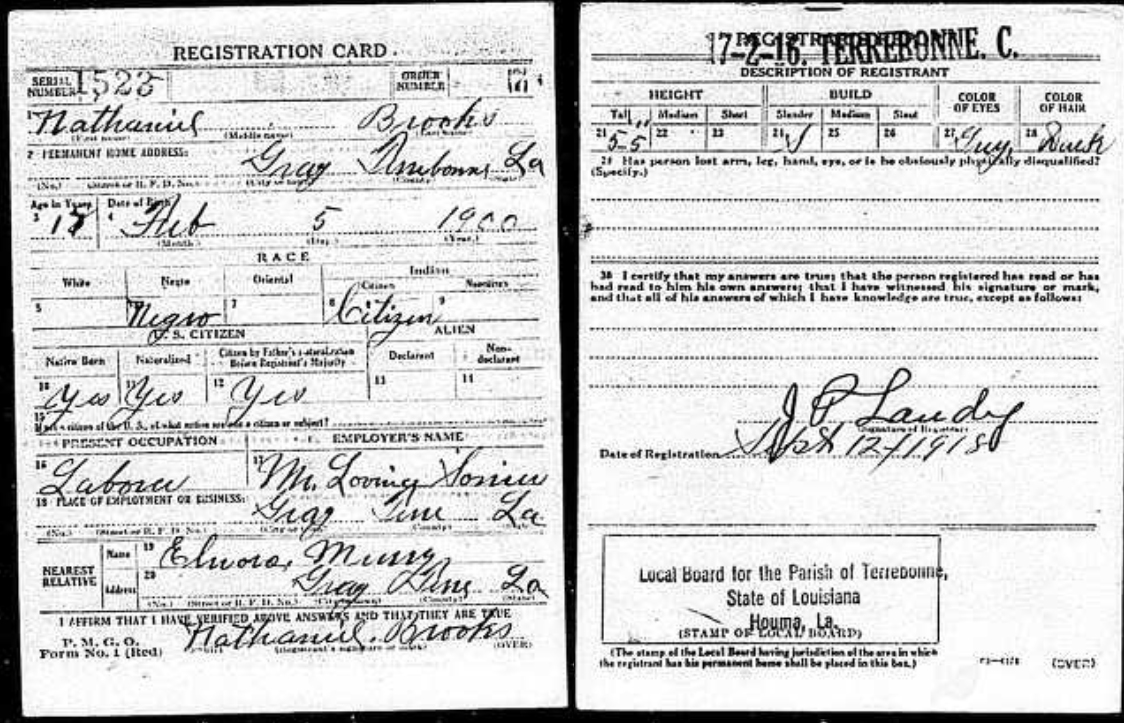 REGISTRATION CARD
SERIAL NUMBER 1523 ORDER NUMBER
1 Nathaniel Brooks
(First name) (Middle name) (Last name)
2 PERMANENT HOME ADDRESS:
Gray Terrebonne La
(No.) (Street or R. F. D. No.) (City or town) (County) (State)
Age in Years Date of Birth
3 18 4 Feb 5 1900
(Month.) (Day.) (Year.)
RACE
White Negro Oriental Indian
Citizen Noncitizen
5 6 Negro 7 8 Citizen 9
U. S. CITIZEN ALIEN
Native Born Naturalized Citizen by Father's Naturalization Before Registrant's Majority Declarant Non-declarant
10 Yes 11 Yes 12 Yes 13 14
15 If not a citizen of the U. S., of what nation are you a citizen or subject?
PRESENT OCCUPATION EMPLOYER'S NAME
16 Laborer 17 Mr. Loving
18 PLACE OF EMPLOYMENT OR BUSINESS:
Gray La
(No.) (Street or R. F. D. No.) (City or town) (County) (State)
NEAREST RELATIVE Name 19
Address 20 Gray La
(No.) (Street or R. F. D. No.) (City or town) (County) (State)
I AFFIRM THAT I HAVE VERIFIED ABOVE ANSWERS AND THAT THEY ARE TRUE
P. M. G. O.
Form No. 1 (Red) Nathaniel Brooks
(Registrant's signature or mark) (OVER)
17-2-16. TERREBONNE. C.
REGISTRAR'S REPORT
DESCRIPTION OF REGISTRANT
HEIGHT BUILD COLOR OF EYES COLOR OF HAIR
Tall Medium Short Slender Medium Stout
21 5-5 22 23 24 ✓ 25 26 27 28
29 Has person lost arm, leg, hand, eye, or is he obviously physically disqualified?
(Specify.)
30 I certify that my answers are true; that the person registered has read or has
had read to him his own answers; that I have witnessed his signature or mark,
and that all of his answers of which I have knowledge are true, except as follows:
J P Landry
(Signature of Registrar)
Date of Registration Sept 12/1918
Local Board for the Parish of Terrebonne,
State of Louisiana
Houma, La.
(STAMP OF LOCAL BOARD)
(The stamp of the Local Board having jurisdiction of the area in which
the registrant has his permanent home shall be placed in this box.)
(OVER)